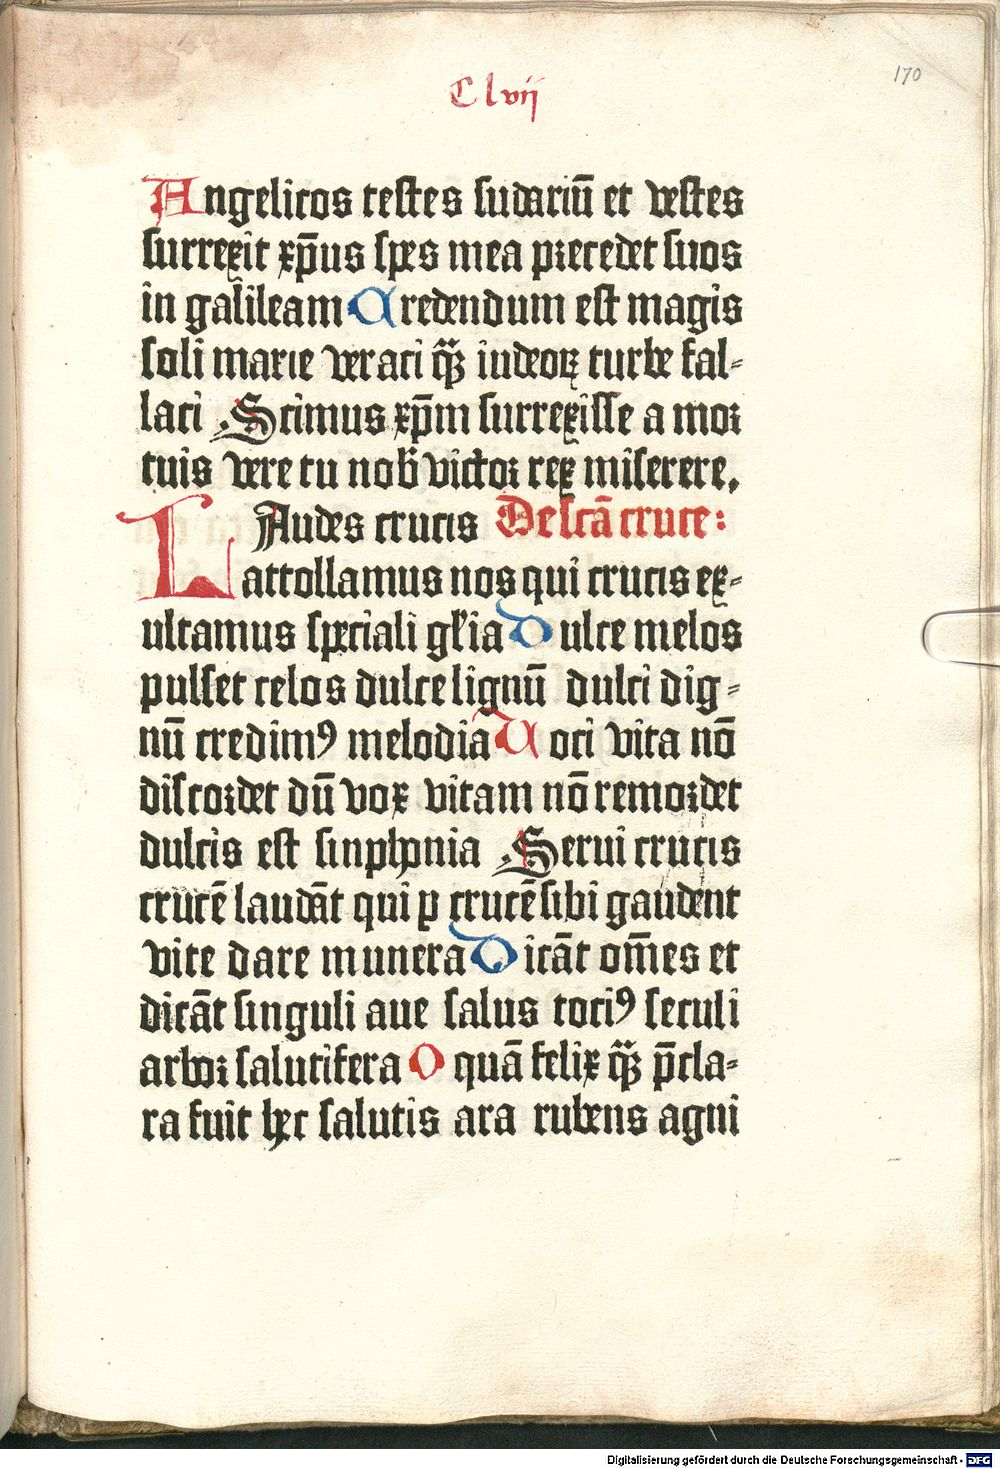 Clvij
170
Angelicos testes sudariū et vestes
surrexit xp̄us spes mea precedet suos
in galileam Credendum est magis
soli marie veraci qͣꝫ iudeoꝝ turbe fal-
laci Scimus xp̄m surrexisse a mor
tuis vere tu nob̄ victor rex miserere.
LAudes crucis De scā cruce:
attollamus nos qui crucis ex-
ultamus speciali gl̄ia Dulce melos
pulset celos dulce lignū dulci dig-
nū credimꝰ melodia Uoci vita nō
discordet dū vox vitam nō remordet
dulcis est sinphonia Serui crucis
crucē laudāt qui ꝑ crucē sibi gaudent
vite dare munera Dicāt om̄es et
dicāt singuli aue salus tociꝰ seculi
arbor salutifera O quā felix qͣꝫ p̄cla-
ra fuit hec salutis ara rubens agni
Digitalisierung gefördert durch die Deutsche Forschungsgemeinschaft - DFG